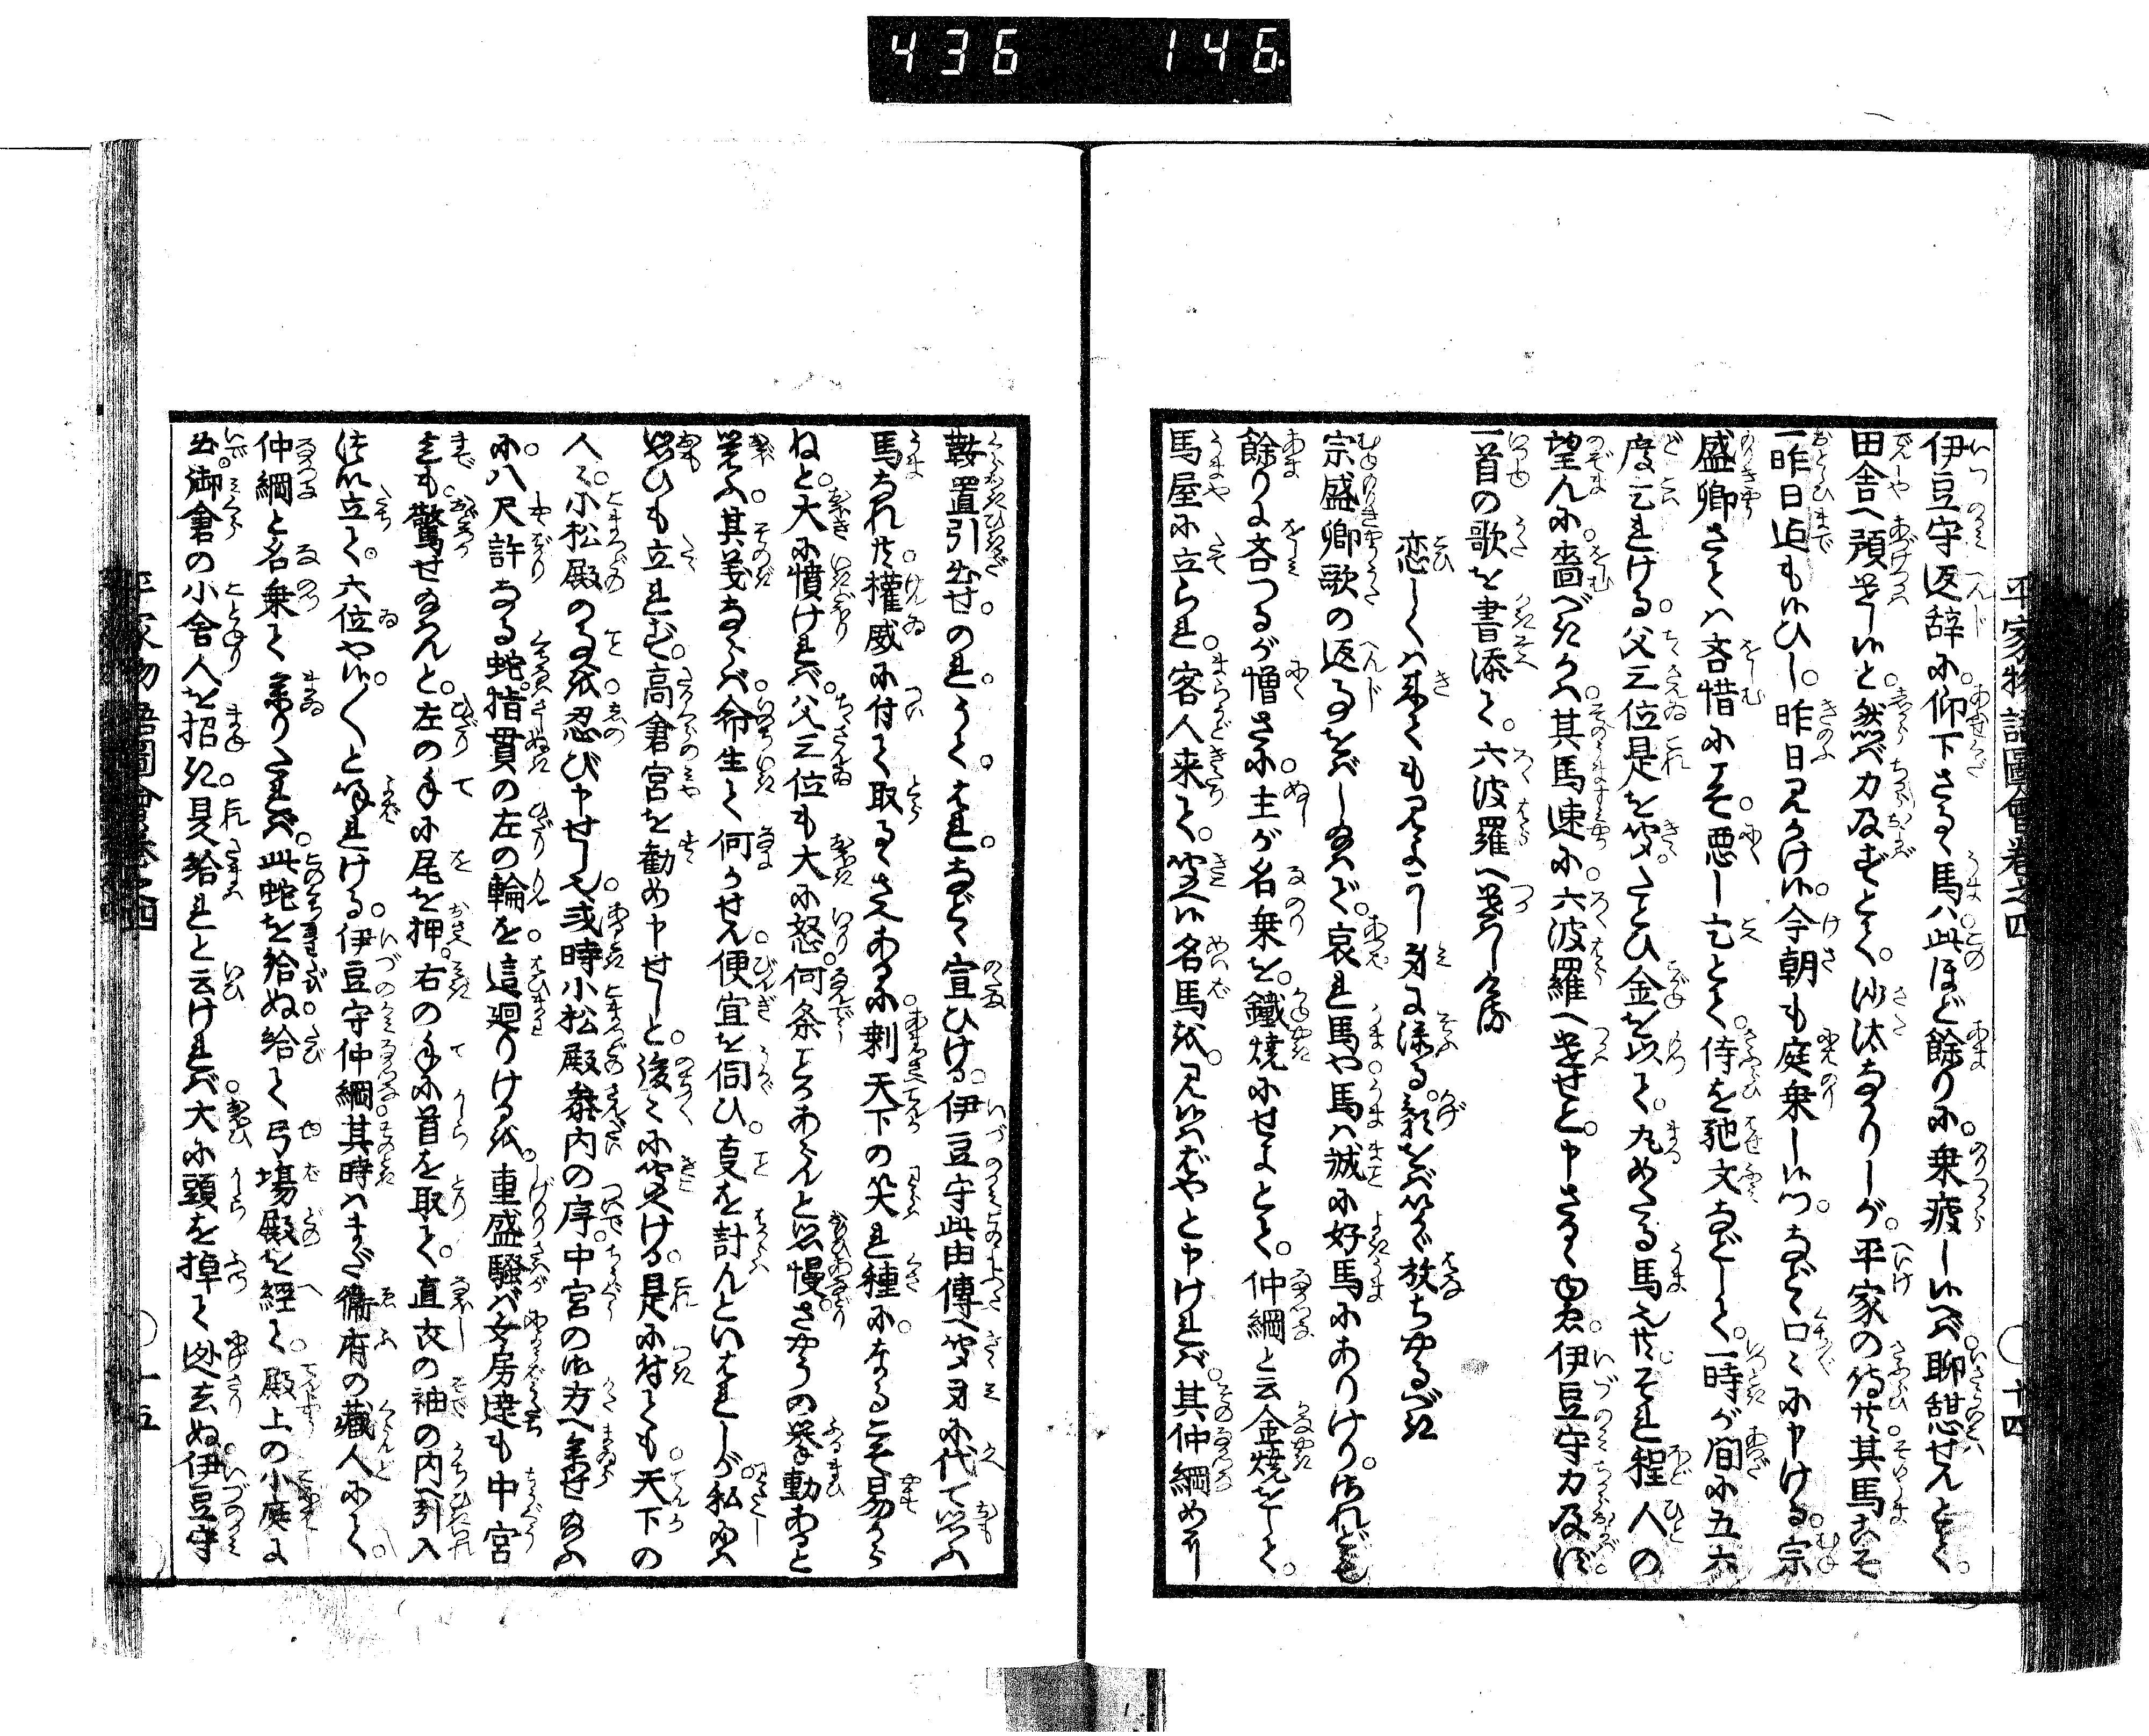 436 146
平家物語圖會卷之四 〇十四
伊豆守返辞に。仰下さるゝ馬ハ此ほど餘りに。乗疲しいへバ聊憩せんとて。
田舎へ預遣しいと。然バ力及ずとて。沙汰なりしが。平家の侍共其馬こそ
一昨日迄もいひし。昨日見かけい。今朝も庭乗しいつ。などゝ口々に申ける。宗
盛卿さてハ吝惜にこそ。悪し乞とて。侍を馳文などして。一時が間に五六
度乞れける。父三位是を聞。たとひ金を以て。丸めたる馬也共。それ程人の
望んに。嗇べきかハ。其馬速に。六波羅へ遣せと。申さるゝ間。伊豆守力及ず。
一首の歌を書添て。六波羅へ遣しける
恋しくハ来ても見よかし身に添る。影をバいかゞ放ちやるべき
宗盛卿歌の返事をバし給ハで。哀れ馬や馬ハ誠に好馬にありけり。されども
餘りに吝つるが憎さに。主が名乗を。鐵焼にせよとて。仲綱と云金焼をして。
馬屋に立られ。客人来て。聞えい名馬を。見いハばやと申けれバ。其仲綱めに
鞍置引出せ。のれ。うて。はれ。などゝ宣ひける。伊豆守此由傳へ聞身に代て思ふ
馬なれ共。權威に付て取るゝさへあるに。剰天下の笑れ種に。なるこそ易から
ねと。大に憤けれバ。父三位も大に怒。何条ことあらんと思慢。さやうの挙動あると
覚ふ。其義ならバ。命生て何かせん。便宜を伺ひ。夏を計んといはれしが。私にハ
思ひも立れず。高倉宮を勧め申せしと。後々に聞えける。是に付ても。天下の
人々。小松殿の事を。忍び申せし也。或時小松殿参内の序。中宮の御方へ参せ給ふ
に。八尺許なる蛇。指貫の左の輪を。這廻りけるを。重盛騒バ女房達も中宮
までも。驚せ給んと。左の手に尾を押。右の手に首を取て。直衣の袖の内へ引入
つい立て。六位やい。〱と召れける。伊豆守仲綱其時ハまだ衞府の藏人にて。
仲綱と名乗て参りたれバ。此蛇を給ぬ給て弓場殿を経て。殿上の小庭に
出。御倉の小舎人を招き。是給れと云けれバ。大に頭を掉て迯去ぬ伊豆守
平家物語圖會卷之四 〇十五